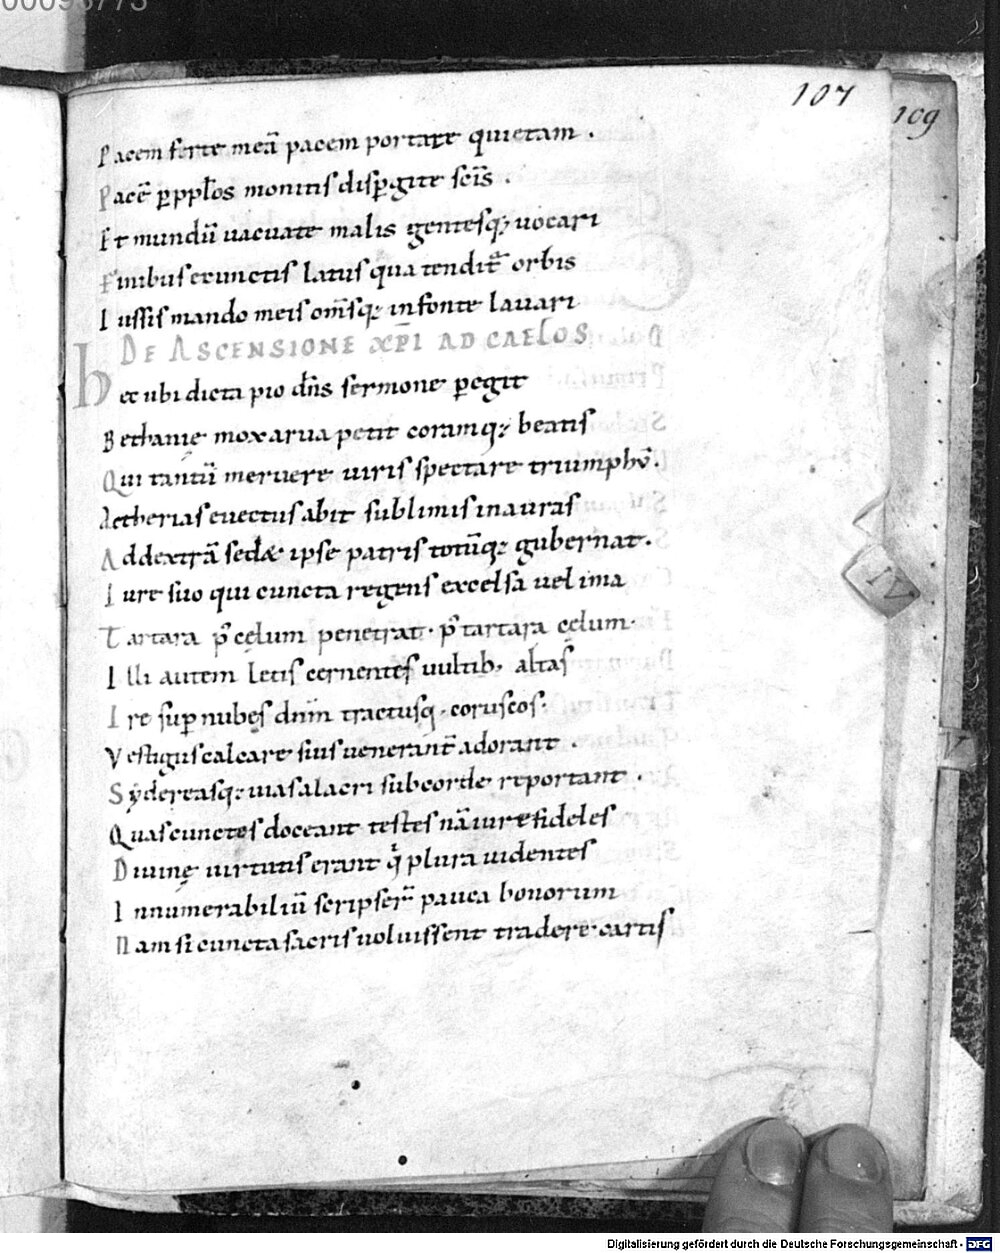 00093773
107
109
Pacem ferte meā pacem portate quietam .
Pacē p̲ppl̄os monitis disp̲gite sc̄is .
Et mundū uacuate malis gentesq; uocari
Finibus ex cunctis latus qua tendit᷒ orbis
Iussis mando meis om̄sq; infonte lauari
DE ASCENSIONE XP̄I AD CAELOS
hec ubi dicta pio dn̄s sermone p̲egit
Bethanię mox arua petit coramq; beatis
Qui tantū meruere uiris spectare triumphū.
Aetherias euectus abit sublimis inauras
Addextrā sedæ ipse patris totūq; gubernat.
Iure suo qui cuncta regens excelsa uel ima
Tartara p̄ cęlum penetrat. p̄ tartara cęlum.
Illi autem letis cernentes uultib; altas
Ire sup̲ nubes dnm̄ tractusq. coruscos.
Vestigiis calcare suis uenerant᷒ adorant .
Sẏdereasq; uias alacri subcorde reportant .
Quas cunctos doceant testes nā iure fideles
Diuinę uirtutis erant q̊ plura uidentes
Innumerabiliū scripser̄ pauca bonorum
Nam si cuncta sacris uoluissent tradere cartis
IV
V
Digitalisierung gefördert durch die Deutsche Forschungsgemeinschaft - DFG